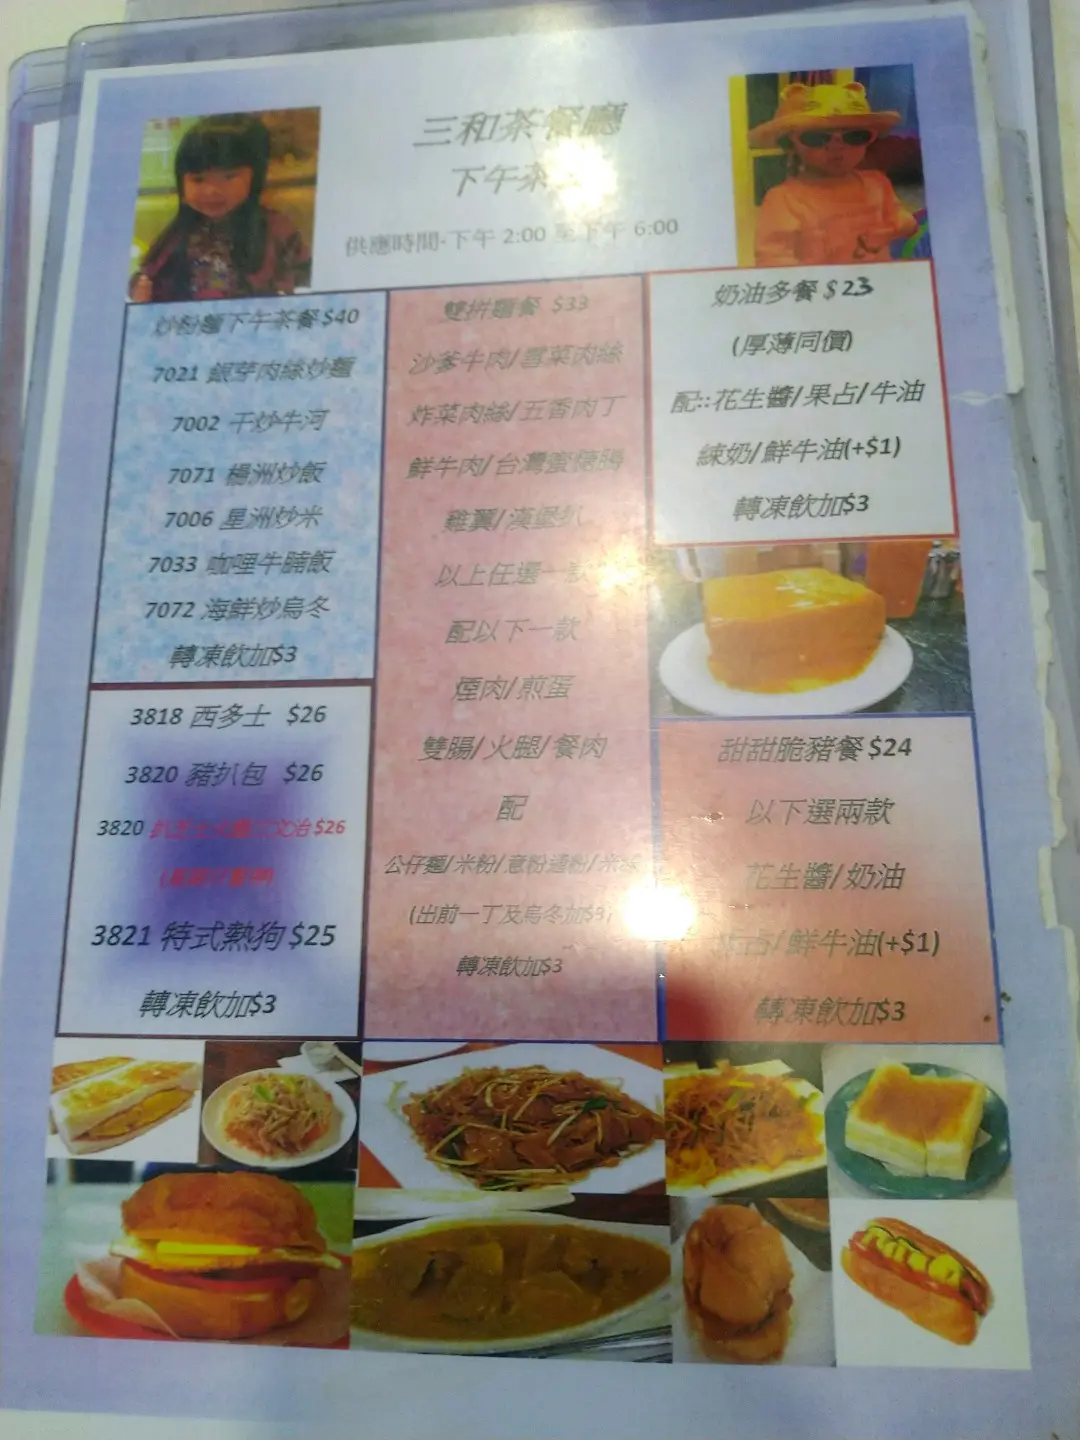 三和茶餐廳
下午茶
供應時間-下午 2:00 至下午 6:00
炒粉麵下午茶餐$40
7021 銀芽肉絲炒麵
7002 干炒牛河
7071 楊洲炒飯
7006 星洲炒米
7033 咖哩牛腩飯
7072 海鮮炒烏冬
轉凍飲加$3
3818 西多士 $26
3820 豬扒包 $26
3820 文治 $26
3821 特式熱狗 $25
轉凍飲加$3
雙拼麵餐 $33
沙爹牛肉/雪菜肉絲
炸菜肉絲/五香肉丁
鮮牛肉/台灣蜜糖腸
雞翼/漢堡扒
以上任選一款
配以下一款
煙肉/煎蛋
雙腸/火腿/餐肉
配
公仔麵/米粉/意粉通粉/米線
(出前一丁及烏冬加$3)
轉凍飲加$3
奶油多餐 $23
(厚薄同價)
配::花生醬/果占/牛油
練奶/鮮牛油(+$1)
轉凍飲加$3
甜甜脆豬餐 $24
以下選兩款
花生醬/奶油
占/鮮牛油(+$1)
轉凍飲加$3